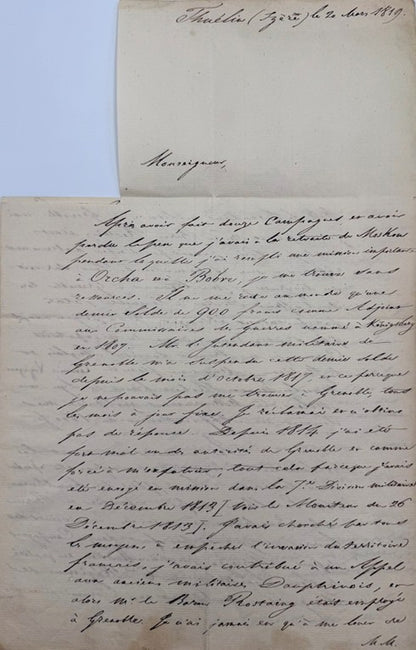 Thuélin (Isère) le 20 Mars 1819.
Monseigneur,
Après avoir fait douze Campagnes et avoir
perdu le peu que j'avais à la retraite de Moskou
pendant laquelle j'ai rempli une mission importante
à Orcha et à Bobre, je me trouve sans
ressources. Il ne me reste au monde qu'une
demie Solde de 900 francs comme Adjoint
aux Commissaires des Guerres nommé à Königsberg
en 1807. Mr l'Intendant militaire de
Grenoble m'a suspendu cette demie solde
depuis le mois d'Octobre 1817 en ce que
je ne pouvais pas me trouver à Grenoble tous
les mois à jour fixe. Je réclamai et n'obtins
pas de réponse. Depuis 1814 j'ai été
fort mal vu des autorités de Grenoble et comme
tout cela parce que j'avais
été envoyé en mission dans la 7me Division militaire
en Décembre 1813 [voir le Moniteur du 26
Décembre 1813]. J'avais cherché par tous
les moyens à empêcher l'invasion du territoire
français, j'avais contribué à un Appel
aux anciens militaires Dauphinois, et
alors Mr le Baron Rostaing était employé
à Grenoble. Je n'ai jamais eu qu'à me louer de
M.M.